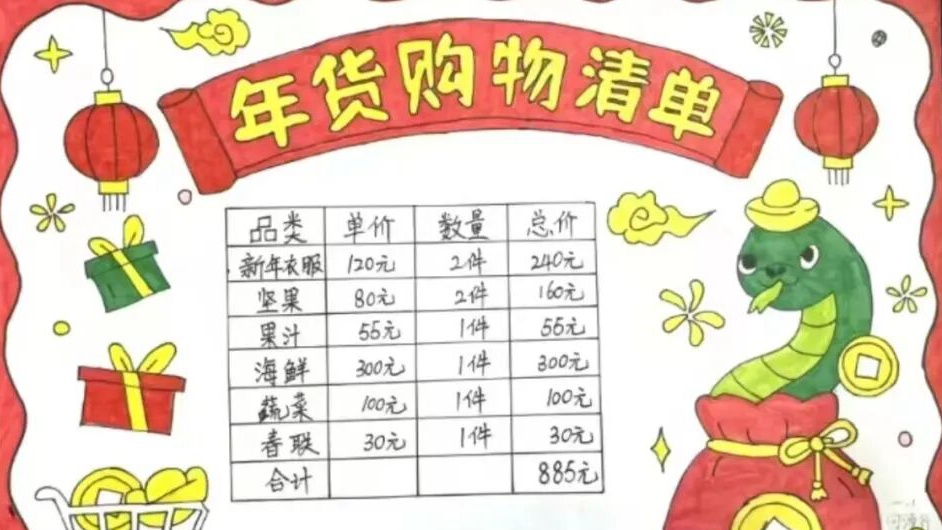 年货购物清单
品类 单价 数量 总价
新年衣服 120元 2件 240元
坚果 80元 2件 160元
果汁 55元 1件 55元
海鲜 300元 1件 300元
蔬菜 100元 1件 100元
春联 30元 1件 30元
合计 885元